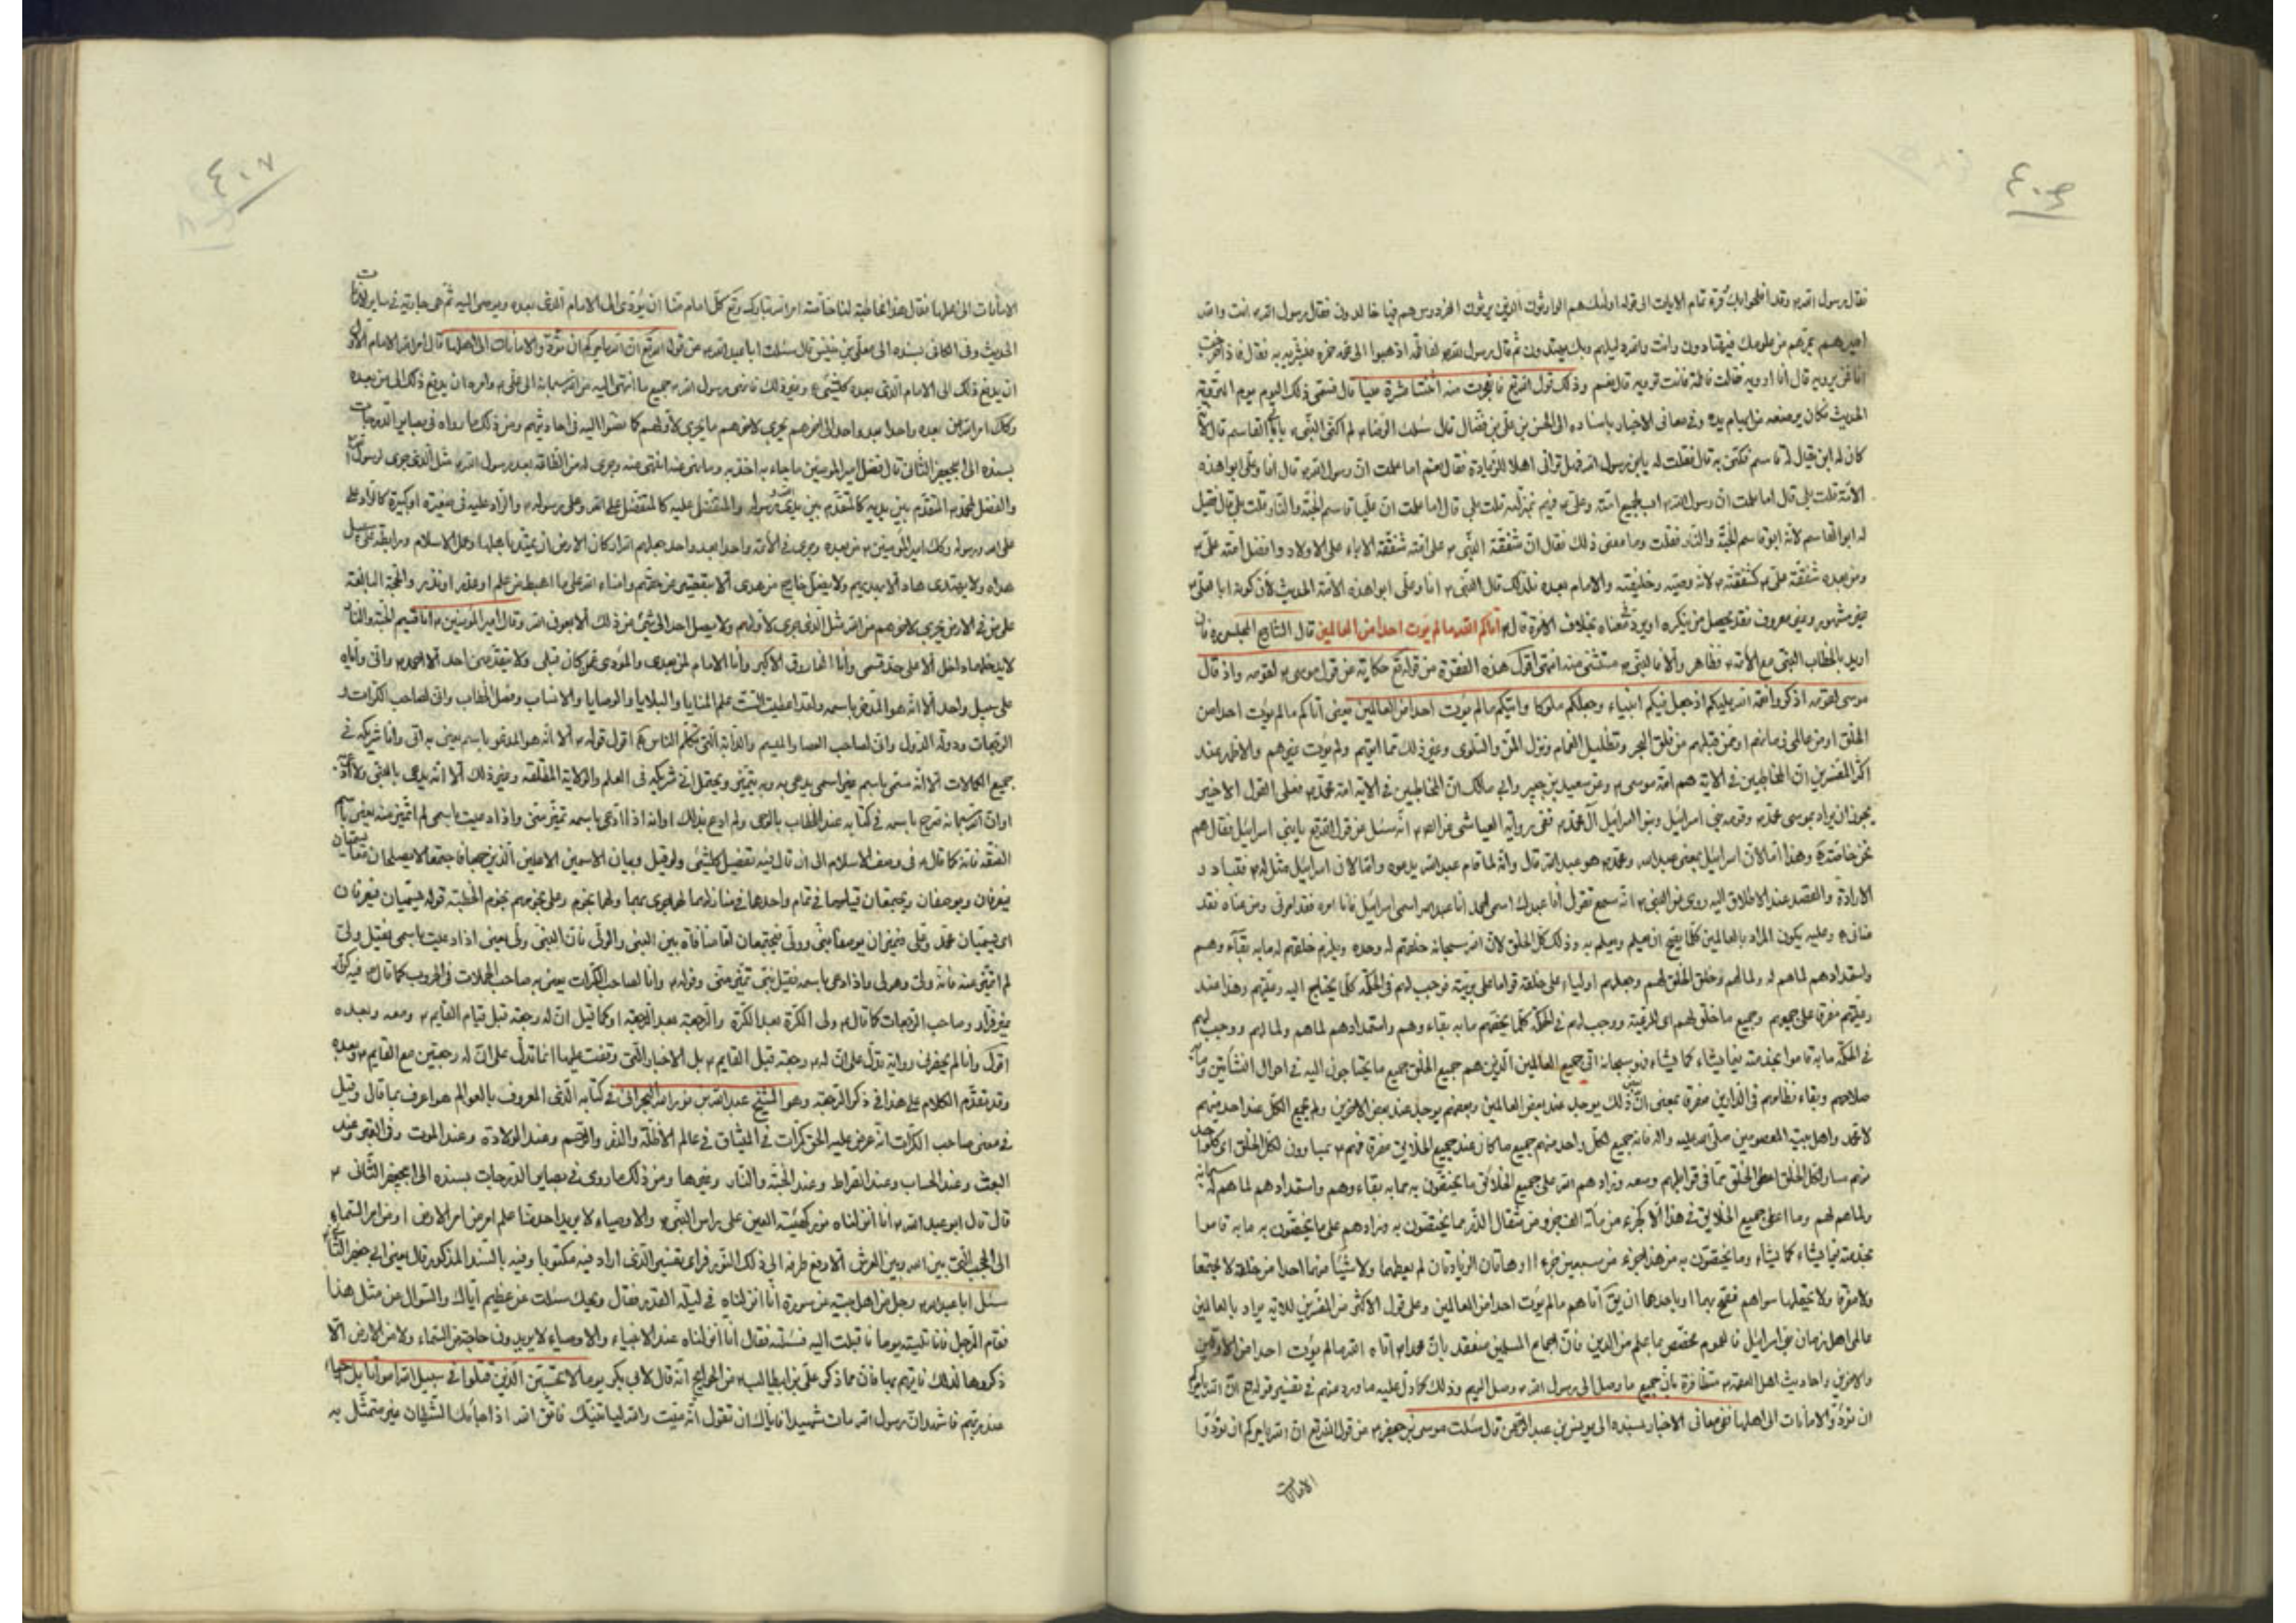 فقال رسول الله وقد افلحوا بك وقرء تمام الايات الى قوله اولئك هم الوارثون الذين يرثون الفردوس هم فيها خالدون فقال رسول الله انت والله
اميرهم تميرهم من علومك فيمتارون وانت والله دليلهم وبك يهتدون ثم قال رسول الله لفاطمة اذهبى الى عمه حمزه فبشريه به فقال فاذا خرجت
انا فمن يرويه قال انا ارويه فقالت فاطمة فانت ترويه قال نعم وذلك قول الله تع فانفجرت منه اثنتا عشرة عينا قال فسمى ذلك اليوم يوم التروية
الحديث وفى معانى الاخبار باسناده الى الحسن بن على بن فضال قال سئلت الرضا لم اكتنى النبى بابى القاسم قال لانه
كان له ابن يقال له قاسم فكنى به قال فقلت له يابن رسول الله فهل ترانى اهلا للزيادة فقال نعم اما علمت ان رسول الله قال انا وعلى ابوا هذه
الامة قلت بلى قال اما علمت ان رسول الله اب لجميع امته وعلى فيهم بمنزلته قلت بلى قال اما علمت ان عليا قاسم الجنة والنار قلت بلى قال فقيل
له ابو القاسم لانه ابو قاسم الجنة والنار فقلت وما معنى ذلك فقال ان شفقة النبى على امته شفقة الاباء على الاولاد وافضل امته على
ومن بعده شفقة على كشفقته لانه وصيه وخليفته والامام بعده فلذلك قال النبى انا وعلى ابوا هذه الامة الحديث لان كونه ابا على
غير مشهور وغير معروف فقد يحصل من ينكره بخلاف الاخرة قال اتاكم الله ما لم يؤت احدا من العالمين قال الشارح المجلسى ره فان
اريد بالخطاب النبى مع الائمة فظاهر والا فالنبى مستثنى منه انتهى اقول هذه الفقرة من قوله تع حكاية من قول موسى لقومه واذ قال
موسى لقومه اذكروا نعمة الله عليكم اذ جعل فيكم انبياء وجعلكم ملوكا واتيكم ما لم يؤت احدا من العالمين يعنى اتاكم ما لم يؤت احدا من
الخلق او من عالمى زمانهم او ممن قبلهم من فلق البحر وتظليل الغمام ونزول المن والسلوى وغير ذلك مما اوتيهم ولم يؤت غيرهم والاظهر عند
اكثر المفسرين ان المخاطبين فى الاية هم امة موسى وعن سعيد بن جبير وابى مالك ان المخاطبين فى الاية امة محمد فعلى القول الاخير
يجوز ان يراد بموسى محمد وقومه بنى اسرائيل وبنو اسرائيل آل محمد ففى رواية العياشى عن الص انه سئل عن قول الله تع يا بنى اسرائيل فقال هم
نحن خاصة وهذا انما لان اسرائيل بمعنى عبد الله ومحمد هو عبد الله قال وانه لما قام عبد الله يدعوه
الارادة والقصد عند الاطلاق اليه روى عن النبى انه سمع يقول انا عبدك اسمى احمد انا عبد الله اسمى اسرائيل فما امره فقد امرنى وما عناه فقد
عنانى وعليه يكون المراد بالعالمين كلما يصح ان يعلم ويعلم به وذلك كل الخلق لان الله سبحانه خلقهم له وحده ويلزم خلقهم له ما به بقاء وهم
واستمدادهم لما هم له ولما لهم وخلق الخلق لهم وجعلهم اولياء على خلقه قواما على بريته فوجب لهم فى الحكمة كلما يحتاج اليه رعيتهم وهذا عند
رعيتهم مفرقا على جميعهم وجميع ما خلق لهم اى للرعية ووجب لهم فى الحكمة كلما يخصهم ما به بقاء وهم واستمدادهم لما هم ولما لهم ووجب لهم
فى الحكمة ما به قاموا بخدمته فيما يشاء كما يشاء فهو سبحانه اتى جميع العالمين الذين هم جميع الخلق جميع ما يحتاجون اليه فى احوال النشأتين وما به
صلاحهم وبقاء نظامهم فى الدارين مفرقا بمعنى ان ذلك يوجد عند بعض العالمين وبعضهم يوجد عند بعض الاخرين ولم يجمع الكل عند احد منهم
لا محمد واهل بيته المعصومين صلى الله عليه واله فانه جمع لكل واحد منهم جميع ما كان عند جميع الخلايق مفرقا فهم يساوون لكل الخلق اى كل واحد
منهم مساو لكل الخلق اعطى الخلق مما فى قوابلهم وسعه وزادهم الله على جميع الخلائق ما يختصون به مما به بقاء وهم واستمدادهم لما هم له سبحانه
ولما هم لهم وما اعطى جميع الخلايق فى هذا الا كجزء من مائة الف جزء من مثقال الذر مما يختصون به وزادهم على ما يختصون به ما به قاموا
بخدمته فيما يشاء كما يشاء وما يختصون به من هذا جزء من سبعين جزء او هاتان الزيادتان لم يعطهما ولا شيئا منهما احدا من خلقه لا مجتمعا
ولا مفرقا ولا يحتملها سواهم فصح بهما او باحدهما ان يق اتاهم ما لم يؤت احدا من العالمين وعلى قول الاكثر من المفسرين للاية يراد بالعالمين
عالمى اهل زمان بنى اسرائيل فالعموم مخصص بما علم من الدين فان اجماع المسلمين منعقد بان محمدا اتاه الله ما لم يؤت احدا من الاولين
والاخرين واحاديث اهل العصمة متظافرة بان جميع ما وصل الى رسول الله وصل اليهم وذلك كما دل عليه ما ورد عنهم فى تفسير قوله تع ان الله يامركم
ان تؤدوا الامانات الى اهلها ففى معانى الاخبار بسنده الى يونس بن عبد الرحمن قال سئلت موسى بن جعفر عن قول الله تع ان الله يامركم ان تؤدوا
الامانات
٤٠٧
الامانات الى اهلها فقال هذه مخاطبة لنا خاصة امر الله تبارك وتع كل امام منا ان يؤدى الى الامام الذى بعده ويوصى اليه ثم هى جارية فى ساير الامانات
الحديث وفى الكافى بسنده الى معلى بن خنيس قال سئلت ابا عبد الله عن قول الله تع ان الله يامركم ان تؤدوا الامانات الى اهلها قال امر الله الامام الاول
ان يدفع ذلك الى الامام الذى بعده كل شئ وغير ذلك فانهى رسول الله جميع ما انتهى اليه من الله سبحانه الى على وامره ان يدفع ذلك الى من بعده
وكك امر الله من بعده واحدا بعد واحد الى اخرهم يجرى لاخرهم ما يجرى لاولهم كما اشاروا اليه فى احاديثهم ومن ذلك ما رواه فى بصاير الدرجات
بسنده الى ابى جعفر الثانى قال فضل امير المومنين ما جاء به اخذ به وما نهى عنه انتهى عنه وجرى له من الطاعة بعد رسول الله مثل الذى جرى لرسول الله
والفضل لمحمد المتقدم بين يديه كالمتقدم بين يدى الله ورسوله والمتفضل عليه كالمتفضل على الله وعلى رسوله والراد عليه فى صغيرة او كبيرة كالراد على
على الله ورسوله وكك امير المومنين من بعده وجرى فى الائمة واحدا بعد واحد جعلهم الله اركان الارض ان تميد باهلها وعمد الاسلام ورابطة على سبيل
هداه ولا يهتدى هاد الا بهديهم ولا يضل خارج من هدى الا بتقصير عن حقهم وامناء الله على ما اهبط من علم او عذر او نذر والحجة البالغة
على من فى الارض يجرى لاخرهم من الله مثل الذى جرى لاولهم ولا يصل احد الى شئ من ذلك الا بعون الله وقال امير المومنين انا قسيم الجنة والنار
لا يدخلها داخل الا على حد قسمى وانا الفاروق الاكبر وانا الامام لمن بعدى والمؤدى عمن كان قبلى ولا يتقدمنى احد الا احمد وانى واياه
على سبيل واحد الا انه هو المدعو باسمه ولقد اعطيت الست علم المنايا والبلايا والوصايا والانساب وفصل الخطاب وانى لصاحب الكرات و
الرجعات ودولة الدول وانى لصاحب العصا والميسم والدابة التى تكلم الناس اقول قوله الا انه هو المدعو باسمه يعنى به انى وانا شريكه فى
جميع الكمالات الا انه سمى باسم غير اسمى يدعى به وبه يتميز ويحتمل انى شريكه فى العلم والولاية المطلقة وغير ذلك الا انه يدعى بالنبى
او ان الله سبحانه صرح باسمه فى كتابه عند الخطاب بالوحى ولم ادع بذلك او انه اذا دعى باسمه تميز منى واذا دعيت باسمى لم اتميز منه
الى ان قال فيه تفصيل كل شئ ولو قيل وبيان الاسمين الاعلين الذين جمعا فاجتمعا لا يصلحان الا معا يسميان
فيعرفان ويوصفان فيجتمعان قيامهما فى تمام واحدهما فى منازلهما لهما نجوى بهما ولهما نجوم وعلى نجومهم نجوم الخطبة قوله فيسميان فيعرفان
اى فيسميان محمد وعلى فيتميزان يوصفا بنبى وولى فيجتمعان لعدم منافاة بين النبى والولى فان النبى ولى يعنى اذا دعيت باسمى فقيل ولى
لم اتميز منه فانه ولى وهو لى واذا دعى باسمه فقيل نبى تميز منى وقوله وانا لصاحب الكرات يعنى به صاحب الحملات فى الحروب كما قال فيه كرار
غير فرار وصاحب الرجعات كما قال ولى الكرة بعد الكرة والرجعة بعد الرجعة او كما قيل ان له رجعة قبل قيام القايم ومعه وبعده
اقول وانا لم يحضرنى رواية تدل على ان له رجعة قبل القايم بل الاخبار التى وقفت عليها انما تدل على ان له رجعتين مع القايم وبعده
وقد تقدم الكلام على هذا فى ذكر الرجعة وهو الشيخ عبد الله بن نور الله البحرانى فى كتابه الذى المعروف بالعوالم هو اعرف بما قال وقيل
فى معنى صاحب الكرات انه عرض عليه الخلق كرات فى الميثاق فى عالم الاظلة والذر والرحم وعند الولادة وعند الموت وفى القبر وعند
البعث وعند الحساب وعند الصراط وعند الجنة والنار وغيرها ومن ذلك ما روى فى بصاير الدرجات بسنده الى ابى جعفر الثانى
قال قال ابو عبد الله انا انزلناه نور كهيئة العين على راس النبى والاوصياء لا يريد احد منا علم امر من امر الارض او من امر السماء
الى الحجب التى بين الله وبين العرش الا رفع طرفه الى ذلك النور فراى تفسير الذى اراد فيه مكتوبا وفيه بالسند المذكور قال يعنى ابى جعفر الثانى
سئل ابا عبد الله رجل من اهل بيته عن سورة انا انزلناه فى ليلة القدر فقال ويلك سئلت عن عظيم اياك والسوال عن مثل هذا
فقام الرجل فاتيته يوما فاقبلت اليه فسئلته فقال انا انزلناه عند الانبياء والاوصياء لا يريدون حاجة من السماء ولا من الارض الا
ذكروها لذلك النور فاتيهم بها فان مما ذكر على بن ابيطالب من الحوائج انه قال لابى بكر يوما لا تحسبن الذين قتلوا فى سبيل الله امواتا بل احياء
عند ربهم فاشهد ان رسول الله مات شهيدا فاياك ان تقول انه ميت والله لياتينك فاتق الله اذا جاءك الشيطان غير متمثل به